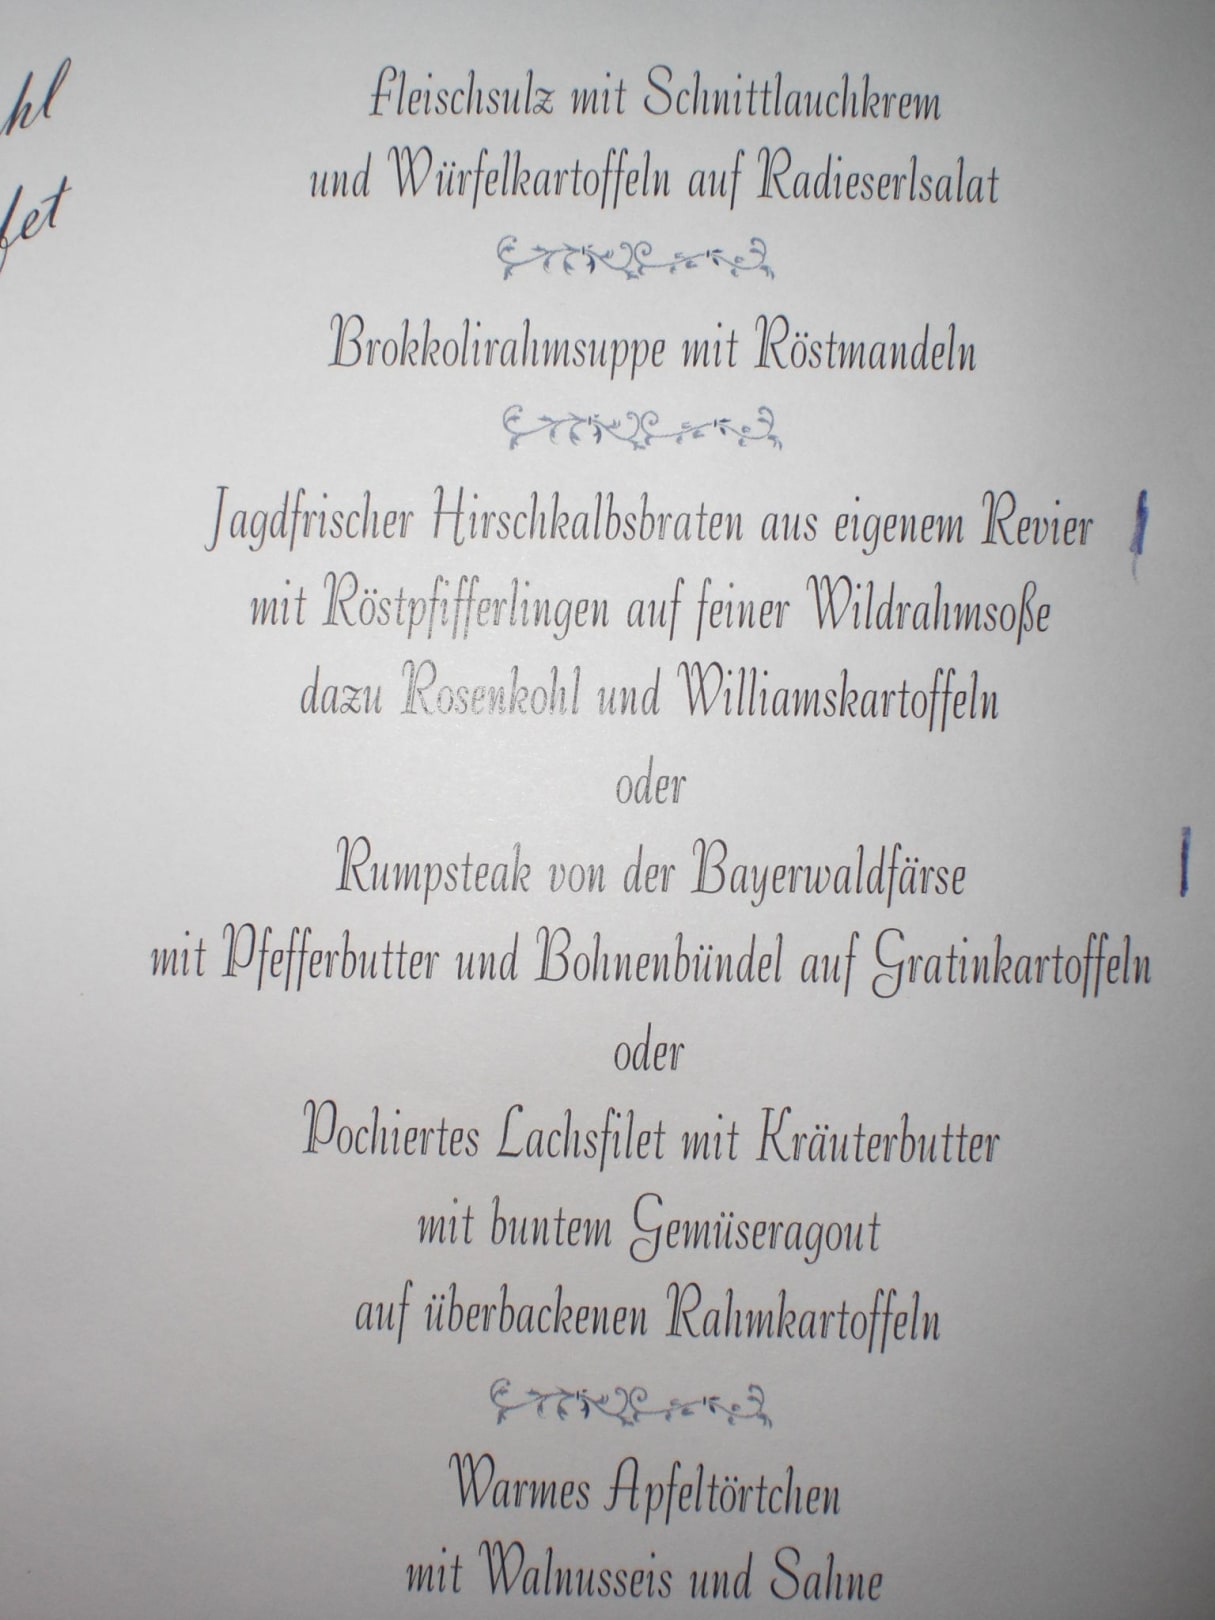 Fleischsulz mit Schnittlauchkrem
und Würfelkartoffeln auf Radieserlsalat
Brokkolirahmsuppe mit Röstmandeln
Jagdfrischer Hirschkalbsbraten aus eigenem Revier
mit Röstpfifferlingen auf feiner Wildrahmsoße
dazu Rosenkohl und Williamskartoffeln
oder
Rumpsteak von der Bayerwaldfärse
mit Pfefferbutter und Bohnenbündel auf Gratinkartoffeln
oder
Pochiertes Lachsfilet mit Kräuterbutter
mit buntem Gemüseragout
auf überbackenen Rahmkartoffeln
Warmes Apfeltörtchen
mit Walnusseis und Sahne